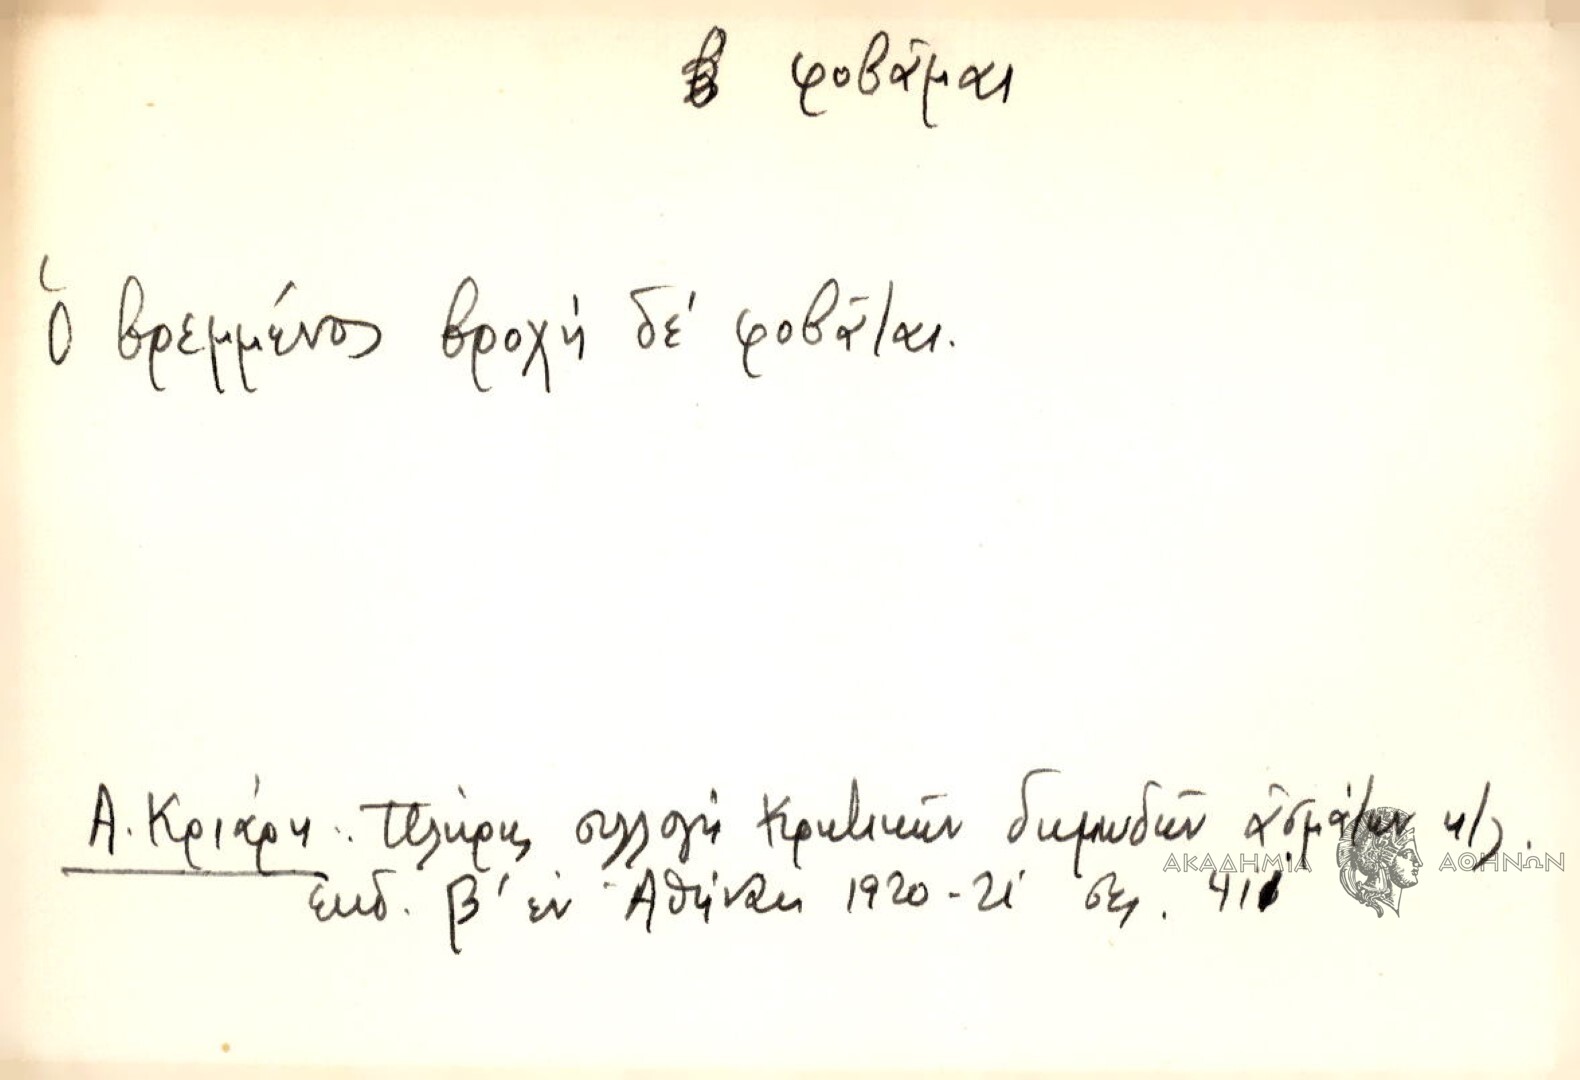 φοβᾶμαι
Ὁ βρεμμένος βροχή δέ φοβᾶται.
Α. Κριάρη: Πλήρης συλλογή Κρητικῶν δημωδῶν ᾀσμάτων κ/λ.
ΑΚΑΔΗΜΙΑ ΑΘΗΝΩΝ
ἐκδ. β' ἐν Ἀθήναις 1920-21 σελ.